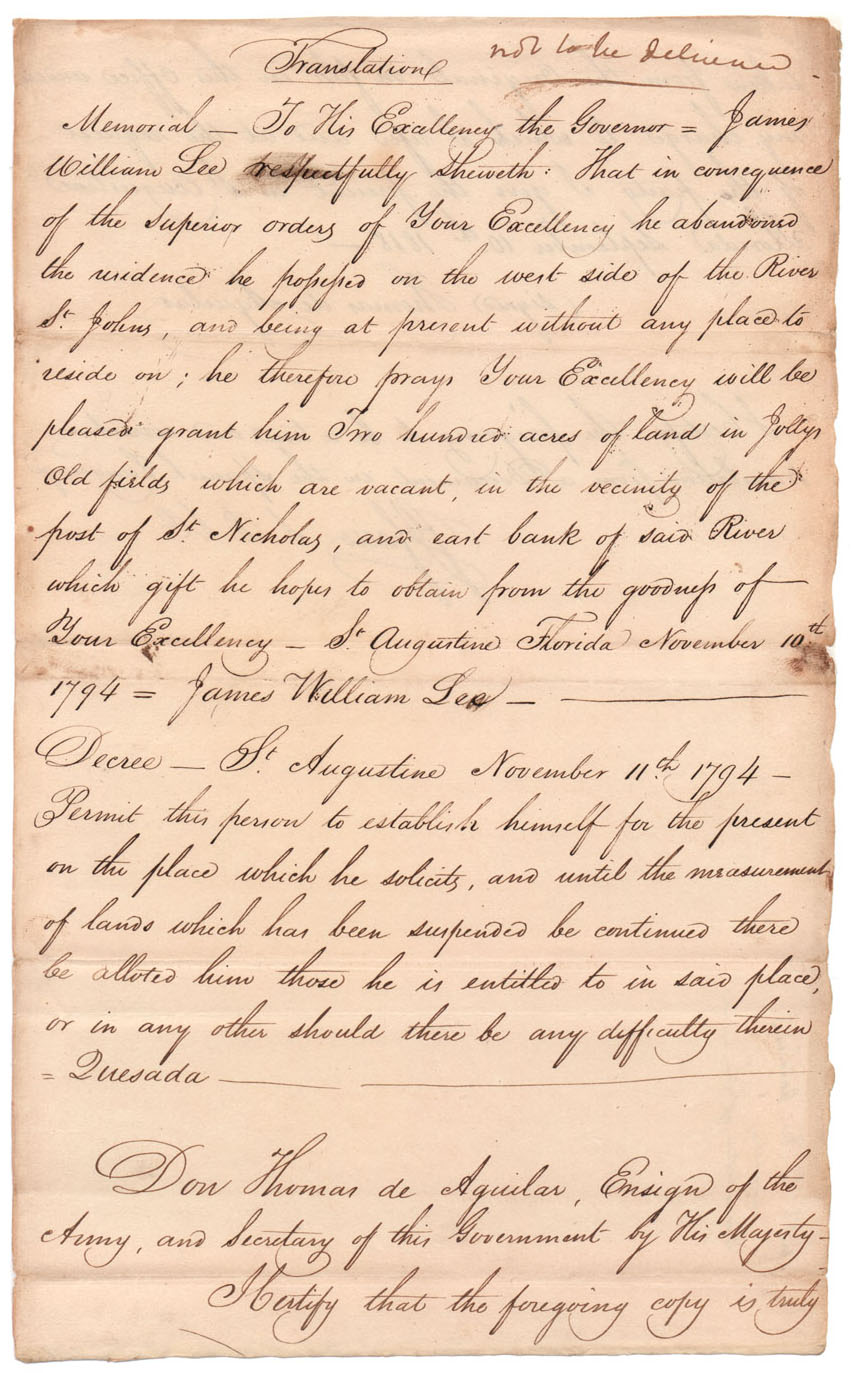 Translation not to be delivered
Memorial — To His Excellency the Governor = James
William Lee respectfully sheweth: That in consequence
of the superior orders of Your Excellency he abandoned
the residence he possessed on the west side of the River
St. Johns, and being at present without any place to
reside on; he therefore prays Your Excellency will be
pleased grant him Two hundred acres of land in Jollys
Old fields which are vacant, in the vecinity of the
post of St. Nicholas, and east bank of said River
which gift he hopes to obtain from the goodness of
Your Excellency — St. Augustine Florida November 10th
1794 = James William Lee —
Decree — St. Augustine November 11th 1794 —
Permit this person to establish himself for the present
on the place which he solicits, and until the measurement
of lands which has been suspended be continued there
be alloted him those he is entitled to in said place,
or in any other should there be any difficulty therein
= Quesada —
Don Thomas de Aguilar, Ensign of the
Army, and Secretary of this Government by His Majesty —
I Certify that the foregoing copy is truly